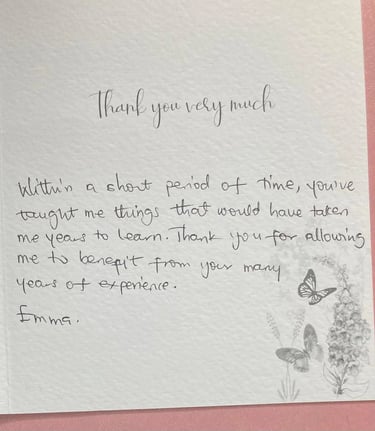 Thank you very much
Within a short period of time, you've
taught me things that would have taken
me years to learn. Thank you for allowing
me to benefit from your many
years of experience.
Emma.